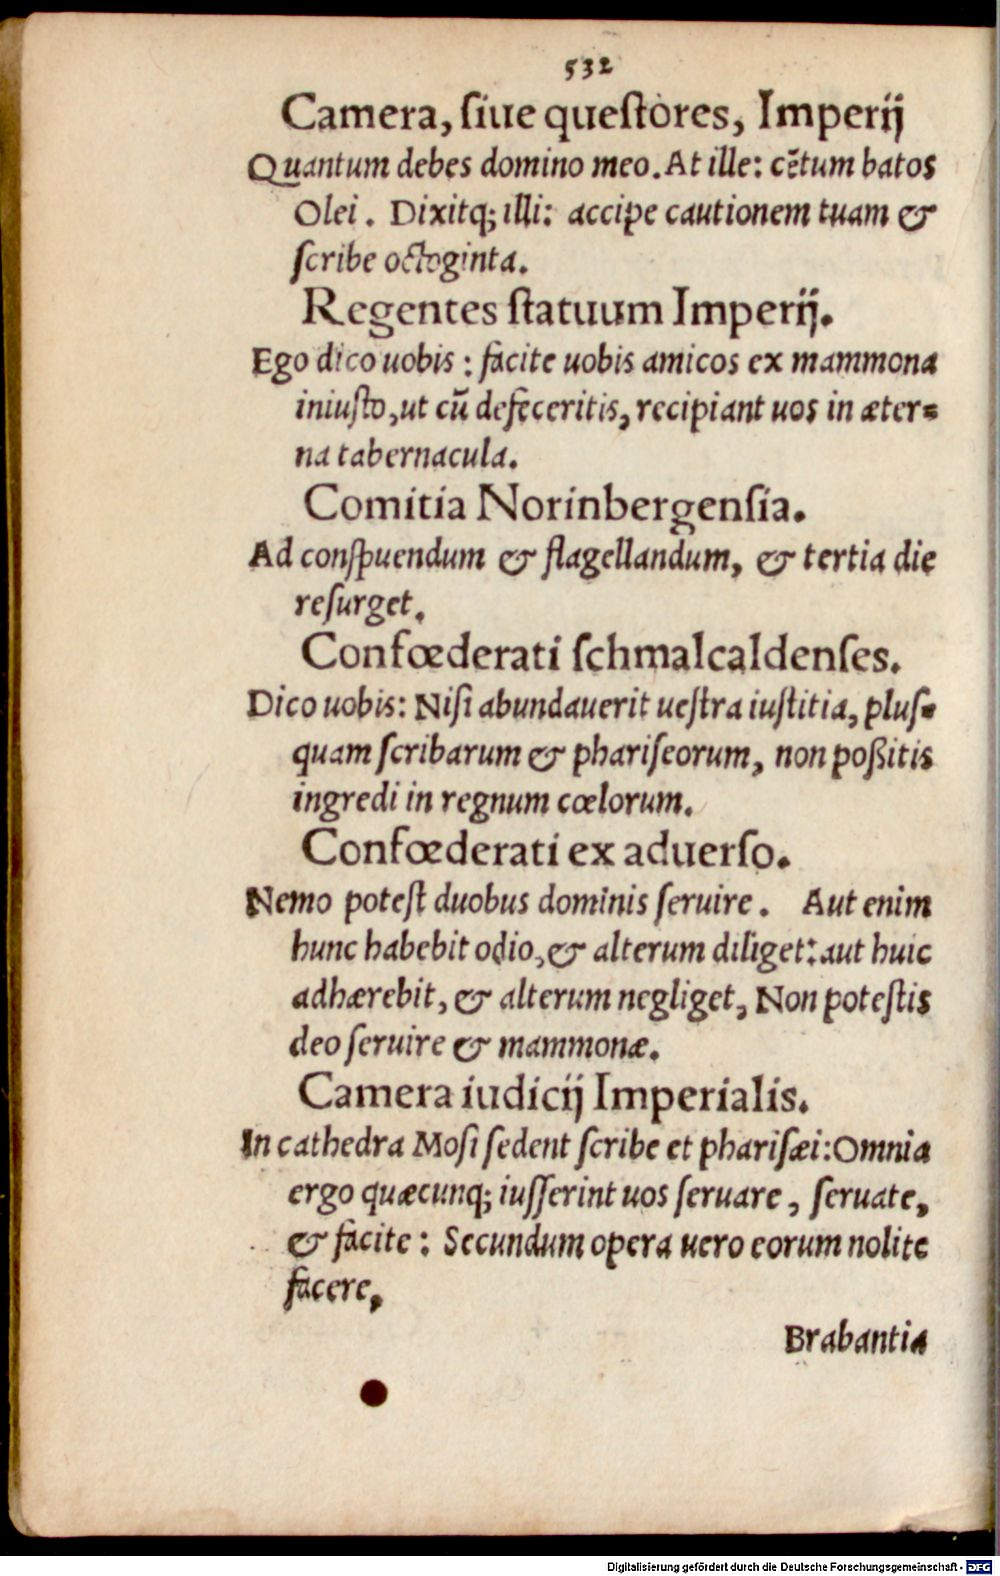 532
Camera, ſiue queſtores, Imperij
Quantum debes domino meo. At ille: cẽtum batos
Olei. Dixitq; illi: accipe cautionem tuam &
ſcribe octoginta.
Regentes ſtatuum Imperij.
Ego dico uobis: facite uobis amicos ex mammona
iniuſto, ut cũ defeceritis, recipiant uos in æter=
na tabernacula.
Comitia Norinbergenſia.
Ad conſpuendum & flagellandum, & tertia die
reſurget.
Confœderati ſchmalcaldenſes.
Dico uobis: Niſi abundauerit ueſtra iuſtitia, pluſ=
quam ſcribarum & phariſeorum, non poßitis
ingredi in regnum cœlorum.
Confœderati ex aduerſo.
Nemo poteſt duobus dominis ſeruire. Aut enim
hunc habebit odio, & alterum diliget: aut huic
adhærebit, & alterum negliget, Non poteſtis
deo ſeruire & mammonæ.
Camera iudicij Imperialis.
In cathedra Moſi ſedent ſcribe et phariſæi: Omnia
ergo quæcunq; iuſſerint uos ſeruare, ſeruate,
& facite: Secundum opera uero eorum nolite
facere,
Brabantia
Digitalisierung gefördert durch die Deutsche Forschungsgemeinschaft - DFG